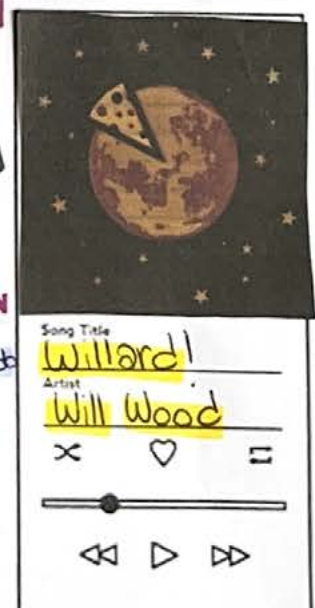 Song Title
Willard!
Artist
Will Wood